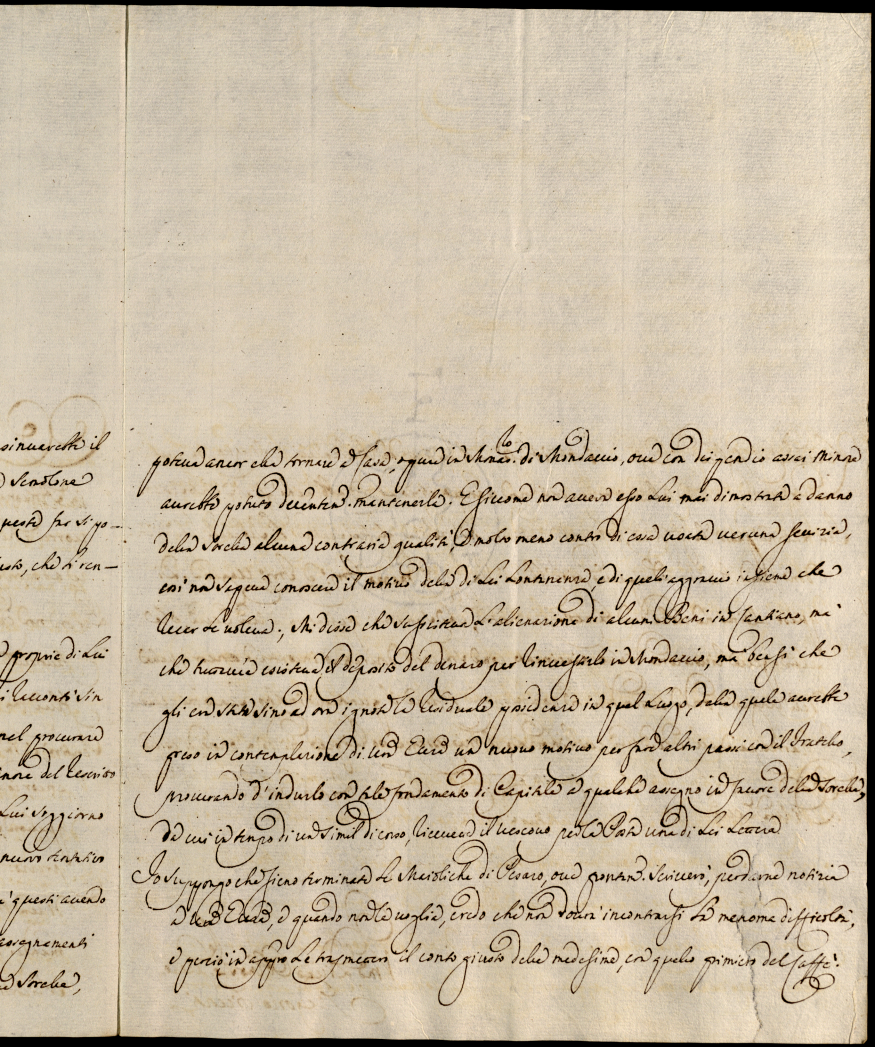 sinuarebbe il
Semolone
questa far si po-
usto, che ti ren-
proprie di Lui
i racconti sin
nel procurare
del Rescritto
Lui soggiorno
nuovo tentativo
questi avendo
assegnamenti
Sorella,
poteva ancor ella tornare a Casa, o pure in Monas.ro di Mondavio, ove con dispendio assai minore
avrebbe potuto decentem.e mantenerla. E siccome non aveva esso Lui mai dimostrate a danno
della Sorella alcune contrarie qualità, e molto meno contro di essa usata veruna sevizia,
così non sapeva conoscere il motivo della di Lei Lontananza, e di quell'aggravio insieme che
recar Le voleva. Mi disse che sussisteva L'alienazione di alcuni Beni in Cantiano, ma
che tuttavia esisteva il deposito del denaro per rinvestirlo in Mondavio, ma bensì che
gli era stata sino ad ora ignota la residuale possidenza in quel Luogo, della quale avrebbe
preso in contemplazione di Vra Ecc.a un nuovo motivo per fare altri passi con il Fratello,
procurando d'indurlo con tale fondamento di Capitale a qualche assegno in favore della Sorella,
da cui in tempo di un simil discorso, riceveva il vescovo per la Posta una di Lei Lettera
Io suppongo che sieno terminate Le Maioliche di Pesaro, ove prontam.e scriverò, per darne notizia
a Vra Ecc.a, e quando non le voglia, credo che non dovrà incontrarsi La menoma difficoltà,
e perciò in appo Le trasmetterò il conto giusto delle medesime, con quello primiero del Caffè.